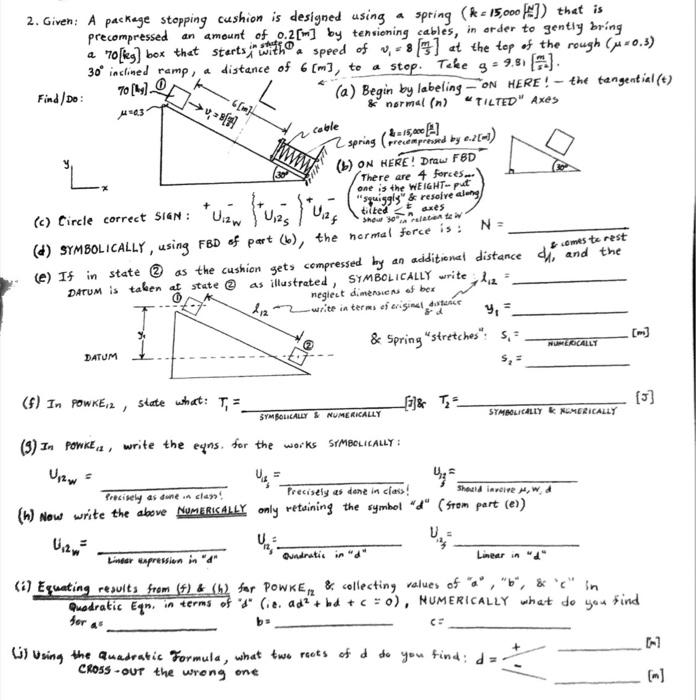 2. Given: A package stopping cushion is designed using a spring (k = 15,000 [N/m]) that is
precompressed an amount of 0.2[m] by tensioning cables, in order to gently bring
a 70[kg] box that starts, in state ①, with a speed of v₁ = 8 [m/s] at the top of the rough (μ=0.3)
30° inclined ramp, a distance of 6 [m], to a stop. Take g = 9.81 [m/s²].
Find/Do:
70 [kg]
①
μ=0.3
v₁ = 8[m/s]
6[m]
cable
spring (k=15,000[N/m] precompressed by 0.2[m])
30°
y
x
(a) Begin by labeling – ON HERE! – the tangential (t)
& normal (n) "TILTED" Axes
30°
(b) ON HERE! Draw FBD
(There are 4 forces...
one is the WEIGHT– put
"squiggly" & resolve along
tilted t n axes
show 30° in relation to W)
(c) Circle correct SIGN: + - U₁₂w } + - U₁₂s } + - U₁₂f
(d) SYMBOLICALLY, using FBD of part (b), the normal force is: N =
(e) If in state ② as the cushion gets compressed by an additional distance d, & comes to rest and the
DATUM is taken at state ② as illustrated, SYMBOLICALLY write: l₁₂ =
neglect dimensions of box
write in terms of original distance & d
y₁ =
①
l₁₂
②
y₁
DATUM
& Spring "stretches": s₁ = [m]
NUMERICALLY
s₂ =
(f) In POWKE₁₂, state what: T₁ = [J] & T₂ = [J]
SYMBOLICALLY & NUMERICALLY SYMBOLICALLY & NUMERICALLY
(g) In POWKE₁₂, write the eqns. for the works SYMBOLICALLY:
U₁₂w = U₁₂s = U₁₂f =
Precisely as done in class! Precisely as done in class! Should involve μ, W, d
(h) Now write the above NUMERICALLY only retaining the symbol "d" (from part (e))
U₁₂w = U₁₂s = U₁₂f =
Linear expression in "d" Quadratic in "d" Linear in "d"
(i) Equating results from (f) & (h) for POWKE₁₂ & collecting values of "a", "b", & "c" in
Quadratic Eqn. in terms of "d" (i.e. ad² + bd + c = 0), NUMERICALLY what do you find
for a= b= c=
(j) Using the Quadratic Formula, what two roots of d do you find: d = + [m]
CROSS-OUT the wrong one - [m]